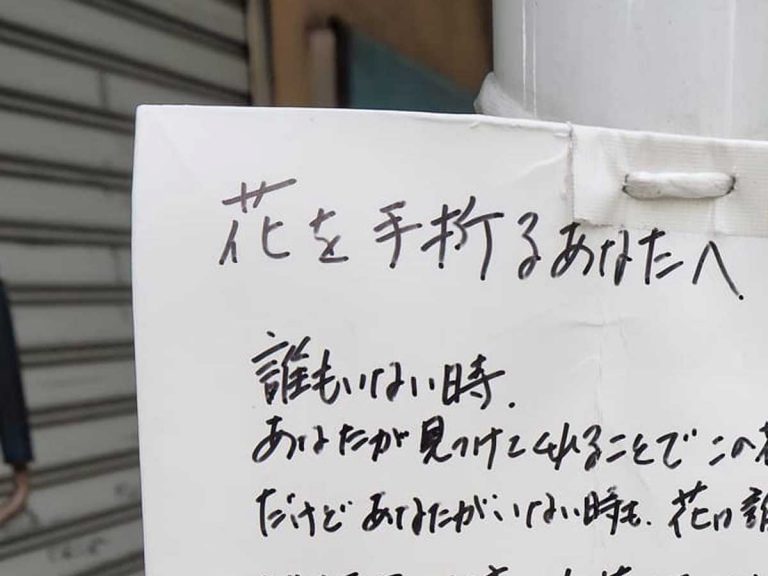 花を手折るあなたへ.
誰もいない時.
あなたが見つけてくれることでこの
だけどあなたがいない時も.花は誰